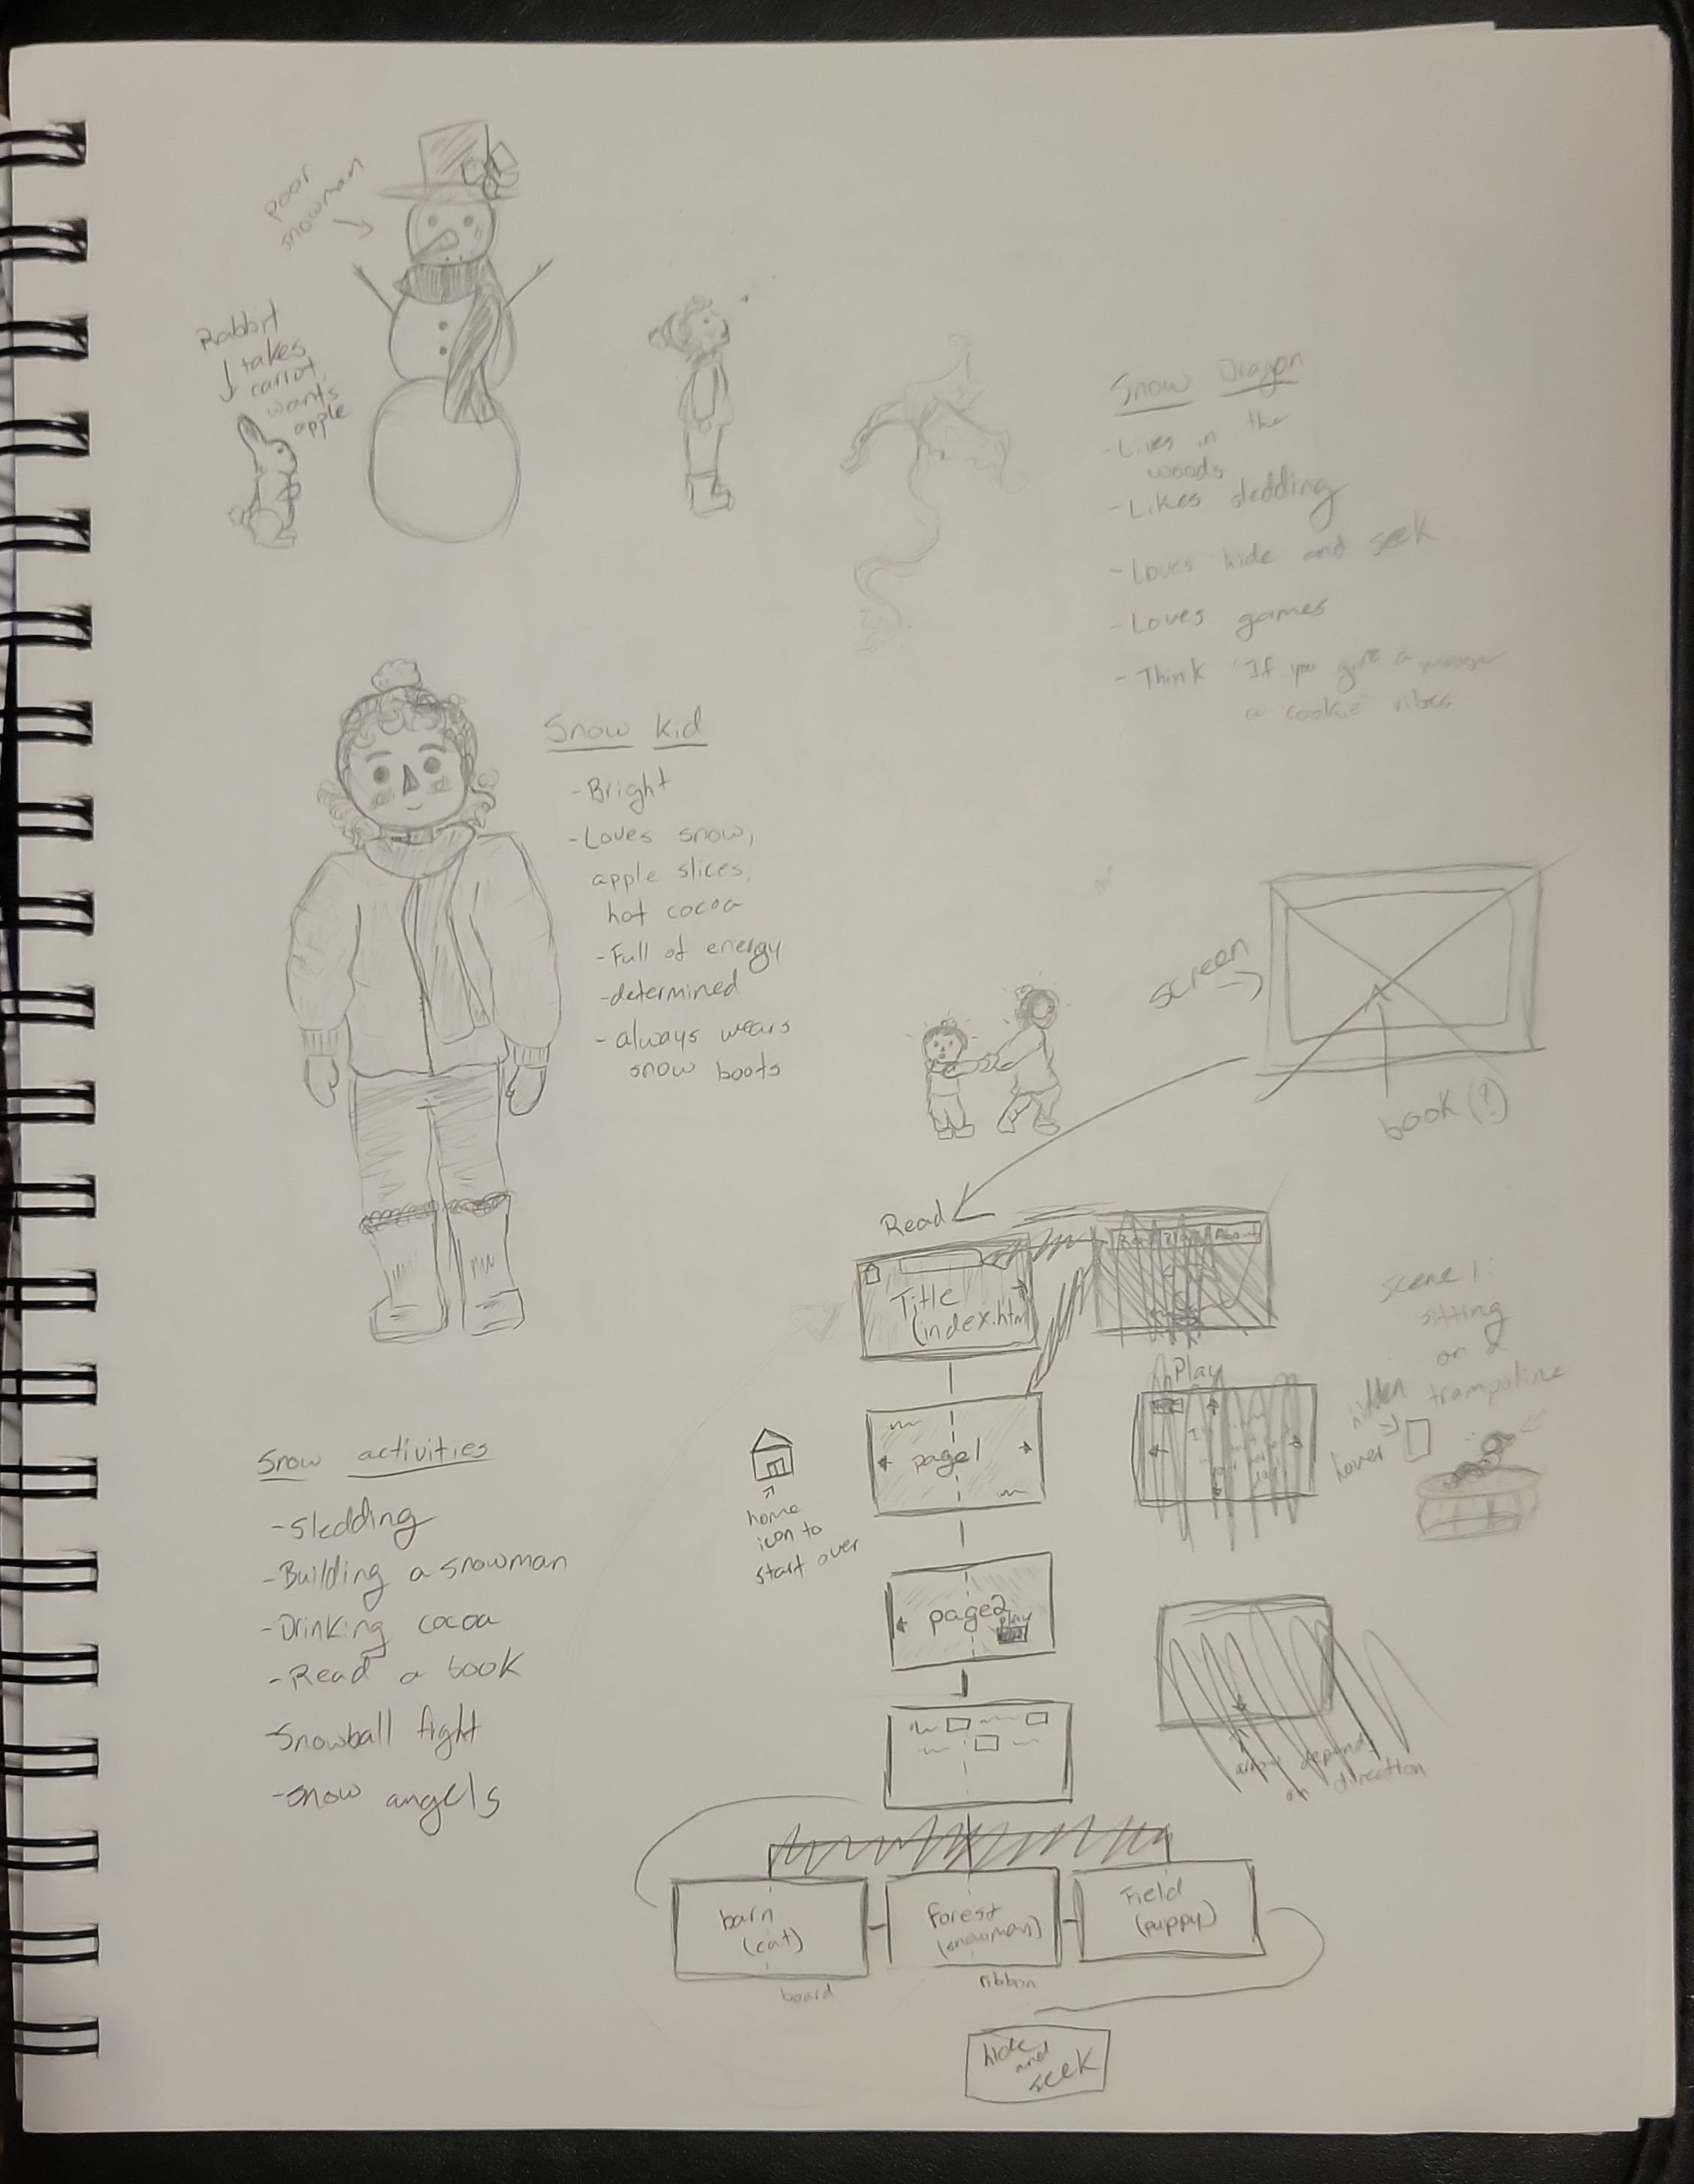 poor
snowman
Rabbit
takes
carrot,
wants
apple
Snow Dragon
-Lives in the
woods
-Likes sledding
-Loves hide and seek
-Loves games
-Think "If you give a
a cookie" vibes
Snow Kid
-Bright
-Loves snow,
apple slices,
hot cocoa
-Full of energy
-determined
-always wears
snow boots
screen
book(?)
Read
Title
(index.html
Play
scene 1:
sitting
on a
trampoline
hidden
hover
page1
home
icon to
start over
page2
Play
Snow activities
-sledding
-Building a snowman
-Drinking cocoa
-Read a book
-Snowball fight
-snow angels
arrow depends
on direction
barn
(cat)
board
forest
(snowman)
ribbon
Field
(puppy)
hide
and
seek